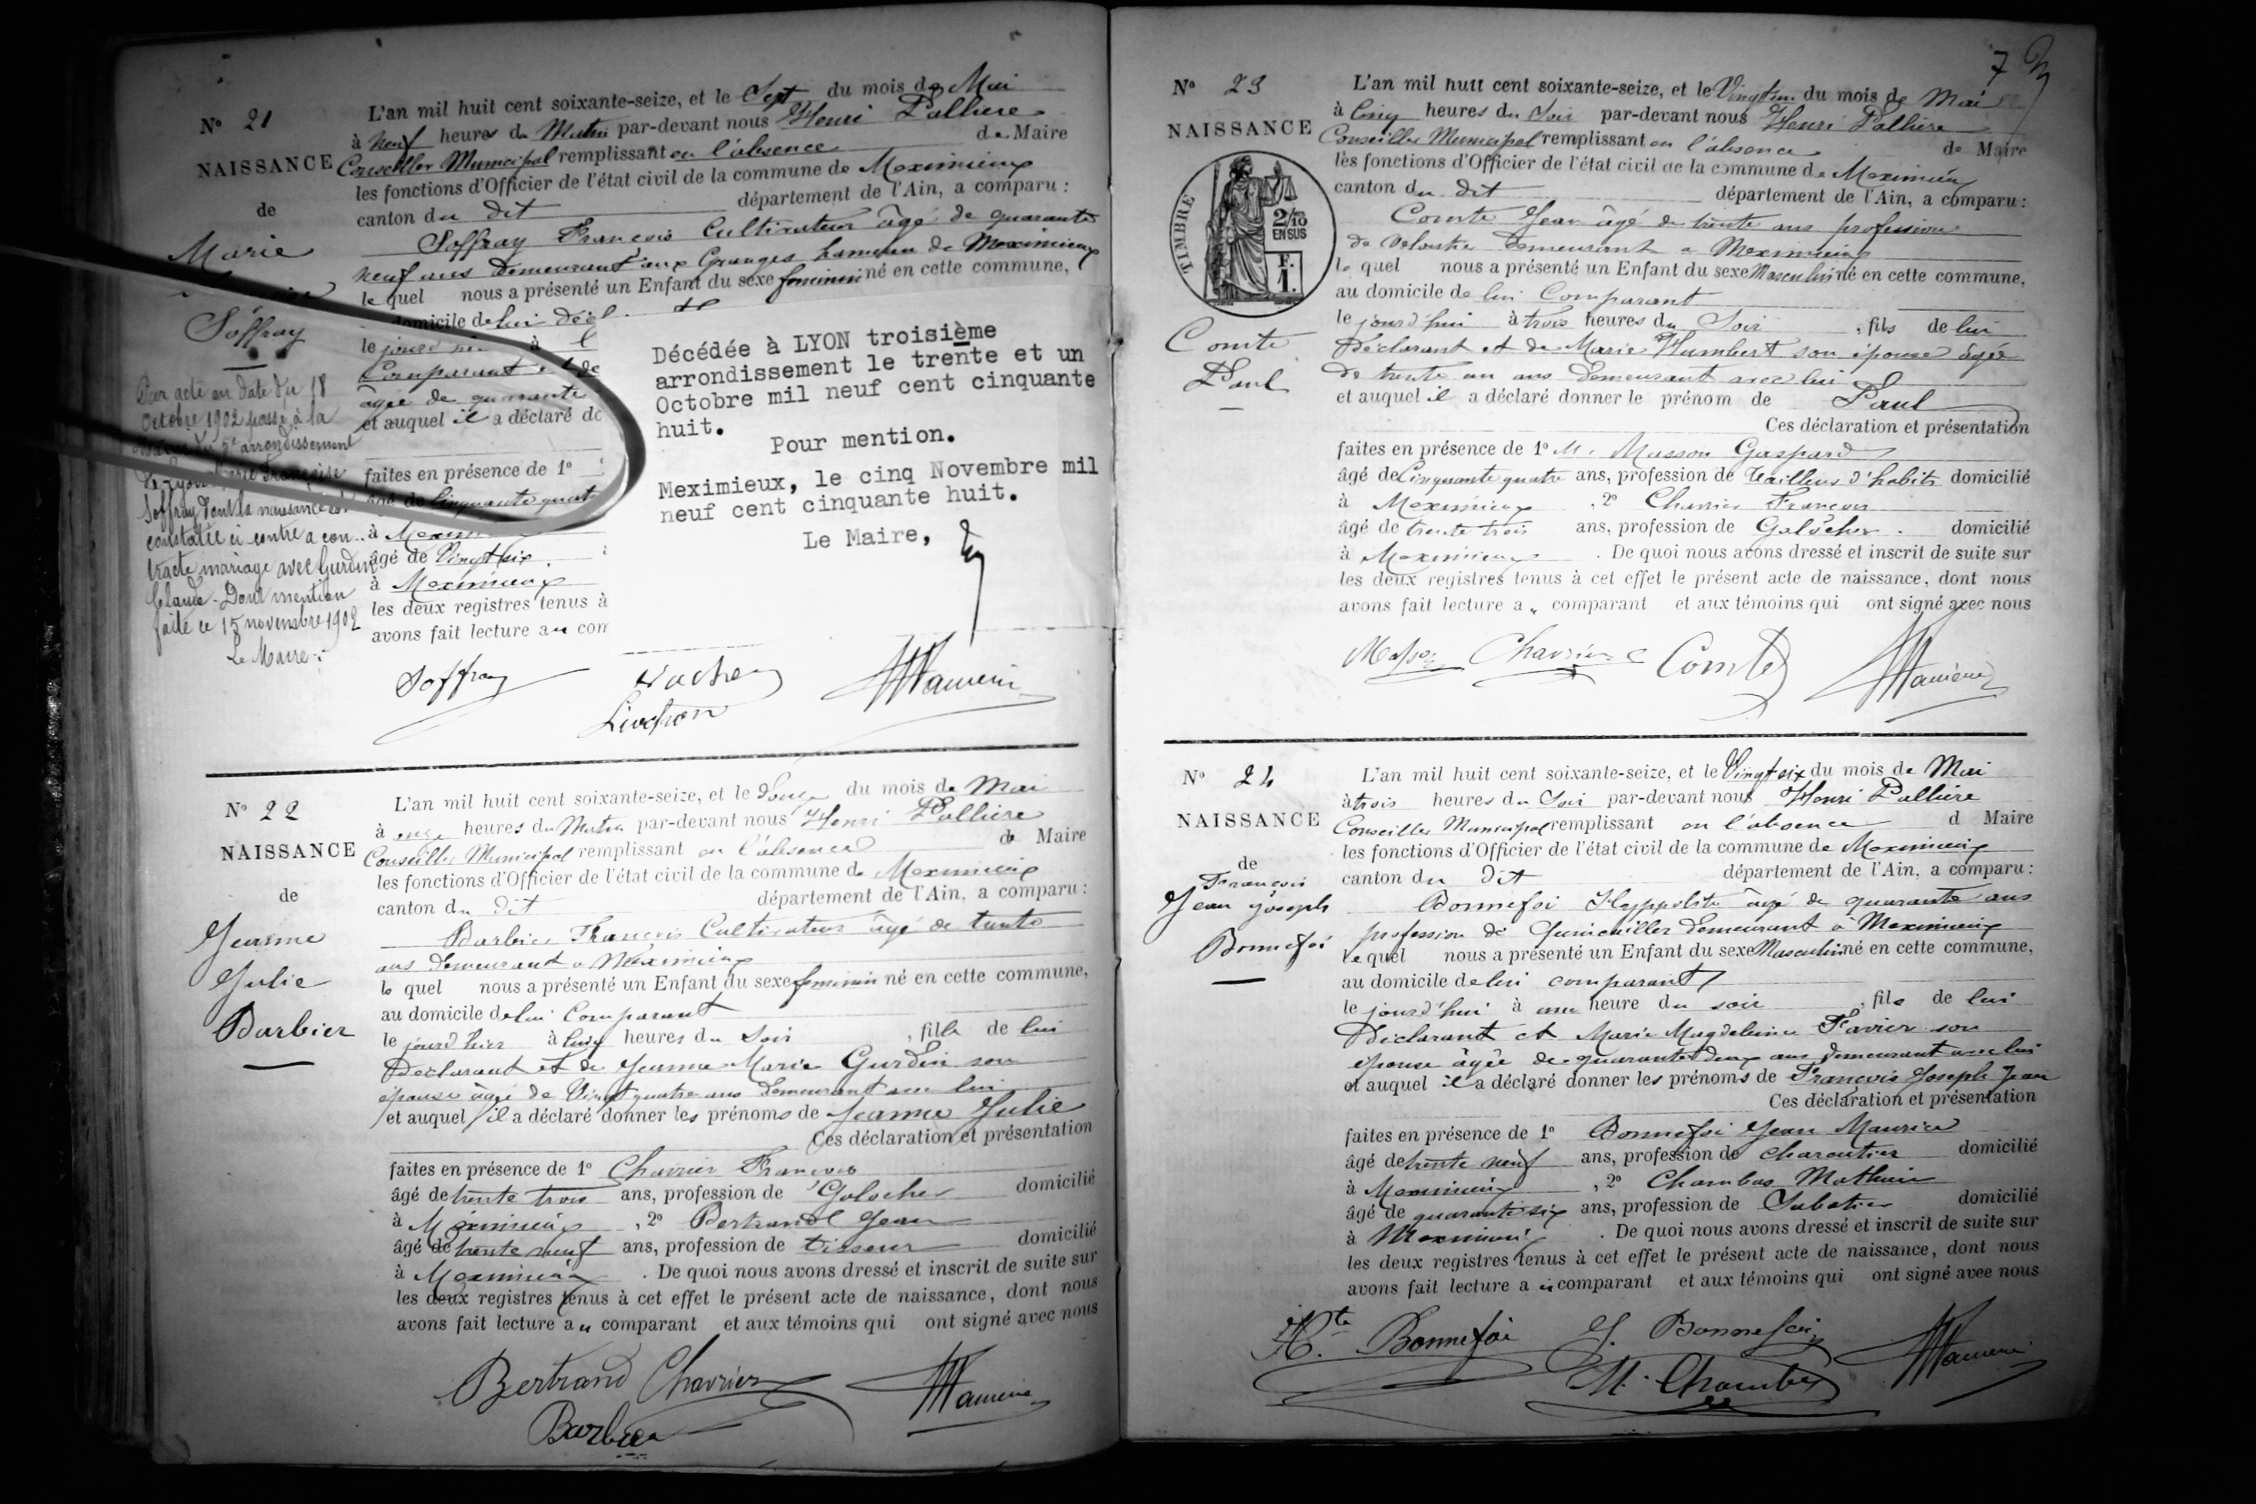 Nº 21
NAISSANCE
de
Marie
Soffray
Par acte en date du 18
octobre 1902 passé à la
arrondissement
Soffray dont la naissance est
constatée ci contre a con..
tracté mariage avec Gurdin
Claude. Dont mention
faite ce 15 novembre 1902
Le Maire:
L'an mil huit cent soixante-seize, et le Sept du mois de Mai
à neuf heures du Matin par-devant nous Henri Pallière
Conseiller Municipal remplissant en l'absence de Maire
les fonctions d'Officier de l'état civil de la commune de Meximieux
canton du dit département de l'Ain, a comparu :
Soffray François Cultivateur âgé de quarante
neuf ans demeurant aux Granges hameau de Meximieux
le quel nous a présenté un Enfant du sexe féminin né en cette commune,
domicile de lui décl
le à
Comparant et de
âgée de quarante
et auquel il a déclaré do
faites en présence de 1º
âgé de Cinquante quat
à
âgé de Vingt six
à Meximieux
les deux registres tenus à
avons fait lecture au com
Décédée à LYON troisième
arrondissement le trente et un
Octobre mil neuf cent cinquante
huit.
Pour mention.
Meximieux, le cinq Novembre mil
neuf cent cinquante huit.
Le Maire,
Soffray
Nº 22
NAISSANCE
de
Jeanne
Julie
Barbier
L'an mil huit cent soixante-seize, et le douze du mois de Mai
à onze heures du Matin par-devant nous Henri Pallière
Conseiller Municipal remplissant en l'absence de Maire
les fonctions d'Officier de l'état civil de la commune de Meximieux
canton du dit département de l'Ain, a comparu :
Barbier François Cultivateur âgé de trente
ans demeurant à Meximieux
le quel nous a présenté un Enfant du sexe féminin né en cette commune,
au domicile de lui Comparant
le jourd'hier à cinq heures du Soir , fille de lui
Déclarant et de Jeanne Marie Gurdin son
épouse âgée de Vingt quatre ans demeurant avec lui
et auquel il a déclaré donner les prénoms de Jeanne Julie
Ces déclaration et présentation
faites en présence de 1º Chavrier François
âgé de trente trois ans, profession de Galocher domicilié
à Meximieux , 2º Bertrand Jean
âgé de trente neuf ans, profession de tisseur domicilié
à Meximieux . De quoi nous avons dressé et inscrit de suite sur
les deux registres tenus à cet effet le présent acte de naissance, dont nous
avons fait lecture au comparant et aux témoins qui ont signé avec nous
Bertrand Chavrier
Barbier
7
Nº 23
NAISSANCE
TIMBRE
2/10
EN SUS
F.
1.
Comte
Paul
L'an mil huit cent soixante-seize, et le Vingt un du mois de Mai
à Cinq heures du Soir par-devant nous Henri Pallière
Conseiller Municipal remplissant en l'absence de Maire
les fonctions d'Officier de l'état civil de la commune de Meximieux
canton du dit département de l'Ain, a comparu :
Comte Jean âgé de trente ans profession
de demeurant à Meximieux
le quel nous a présenté un Enfant du sexe Masculin né en cette commune,
au domicile de lui Comparant
le jourd'hui à trois heures du Soir , fils de lui
Déclarant et de Marie Humbert son épouse âgée
de trente un ans demeurant avec lui
et auquel il a déclaré donner le prénom de Paul
Ces déclaration et présentation
faites en présence de 1º M. Masson Gaspard
âgé de Cinquante quatre ans, profession de tailleur d'habits domicilié
à Meximieux , 2º Chavrier François
âgé de trente trois ans, profession de Galocher . domicilié
à Meximieux . De quoi nous avons dressé et inscrit de suite sur
les deux registres tenus à cet effet le présent acte de naissance, dont nous
avons fait lecture au comparant et aux témoins qui ont signé avec nous
Masson Chavrier Comte
Nº 24
NAISSANCE
de
François
Jean joseph
Bonnefoi
L'an mil huit cent soixante-seize, et le Vingt six du mois de Mai
à trois heures du Soir par-devant nous Henri Pallière
Conseiller Municipal remplissant en l'absence d Maire
les fonctions d'Officier de l'état civil de la commune de Meximieux
canton du dit département de l'Ain, a comparu :
Bonnefoi Hyppolite âgé de quarante ans
profession de demeurant à Meximieux
le quel nous a présenté un Enfant du sexe Masculin né en cette commune,
au domicile de lui comparant
le jourd'hui à une heure du soir , fils de lui
Déclarant et Marie Magdeleine Favier son
épouse âgée de quarante deux ans demeurant avec lui
et auquel il a déclaré donner les prénoms de François Joseph Jean
Ces déclaration et présentation
faites en présence de 1º Bonnefoi Jean Maurice
âgé de trente neuf ans, profession de charcutier domicilié
à Meximieux , 2º Chambas Mathieu
âgé de quarante six ans, profession de Sabotier domicilié
à Meximieux . De quoi nous avons dressé et inscrit de suite sur
les deux registres tenus à cet effet le présent acte de naissance, dont nous
avons fait lecture au comparant et aux témoins qui ont signé avec nous
H.te Bonnefoi J. Bonnefoi
M. Chambas